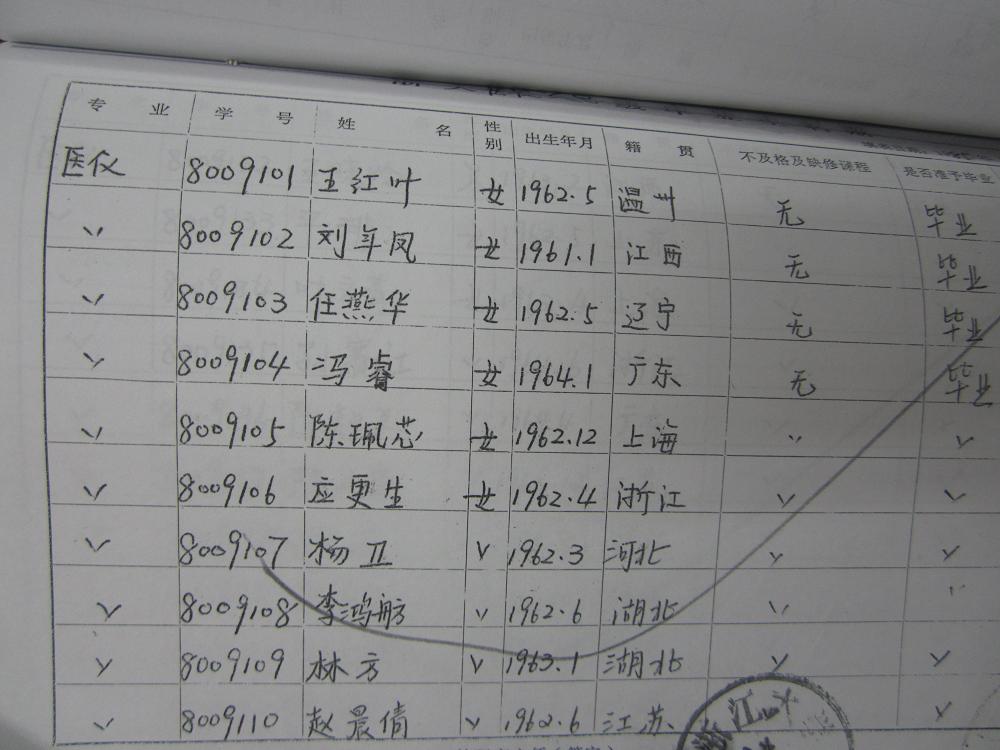 专 业 学 号 姓 名 性别 出生年月 籍 贯 不及格及缺修课程 是否准予毕业
医仪 8009101 王红叶 女 1962.5 温州 无 毕业
〃 8009102 刘年凤 女 1961.1 江西 无 毕业
〃 8009103 任燕华 女 1962.5 辽宁 无 毕业
〃 8009104 冯睿 女 1964.1 广东 无 毕业
〃 8009105 陈珮芯 女 1962.12 上海 〃 〃
〃 8009106 应更生 女 1962.4 浙江 〃 〃
〃 8009107 杨卫 〃 1962.3 河北 〃 〃
〃 8009108 李鸿舫 〃 1962.6 湖北 〃 〃
〃 8009109 林方 〃 1963.1 湖北 〃 〃
〃 8009110 赵晨倩 〃 1962.6 江苏 〃
浙江大